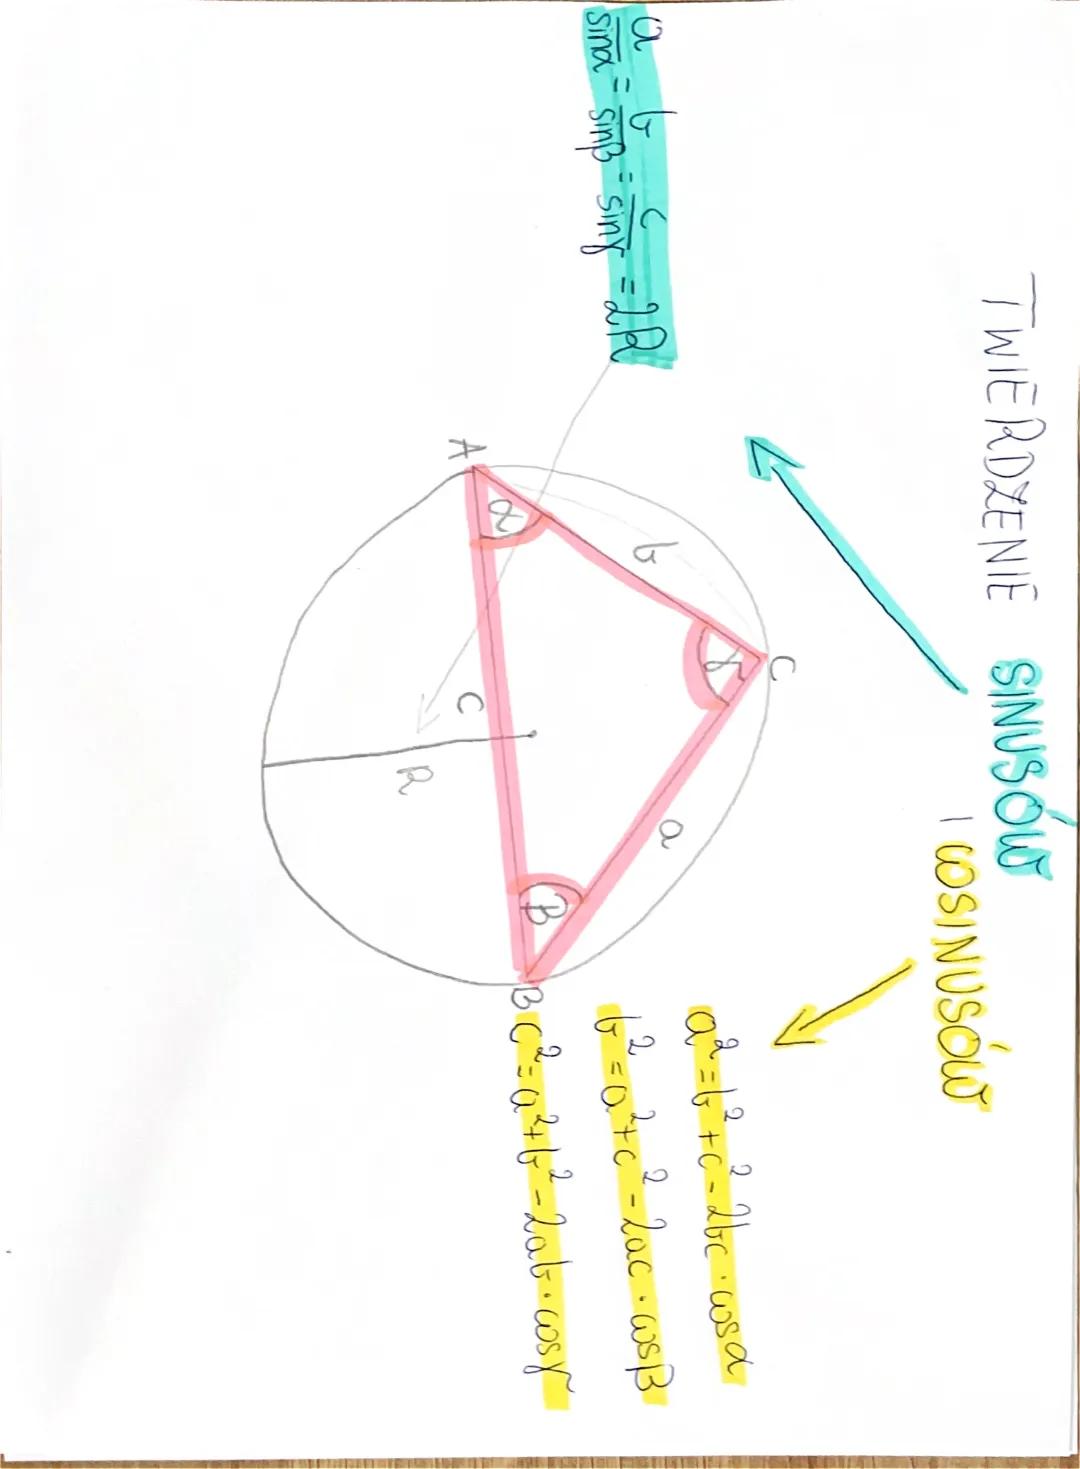 TWIERDZENIE SINUSÓW
I COSINUSÓW
a/sinα = b/sinβ = c/sinγ = 2R
a² = b² + c² - 2bc · cosα
b² = a² + c² - 2ac · cosβ
c² = a² + b² - 2ab · cosγ
C
γ
b
a
α
β
A
c
B
R